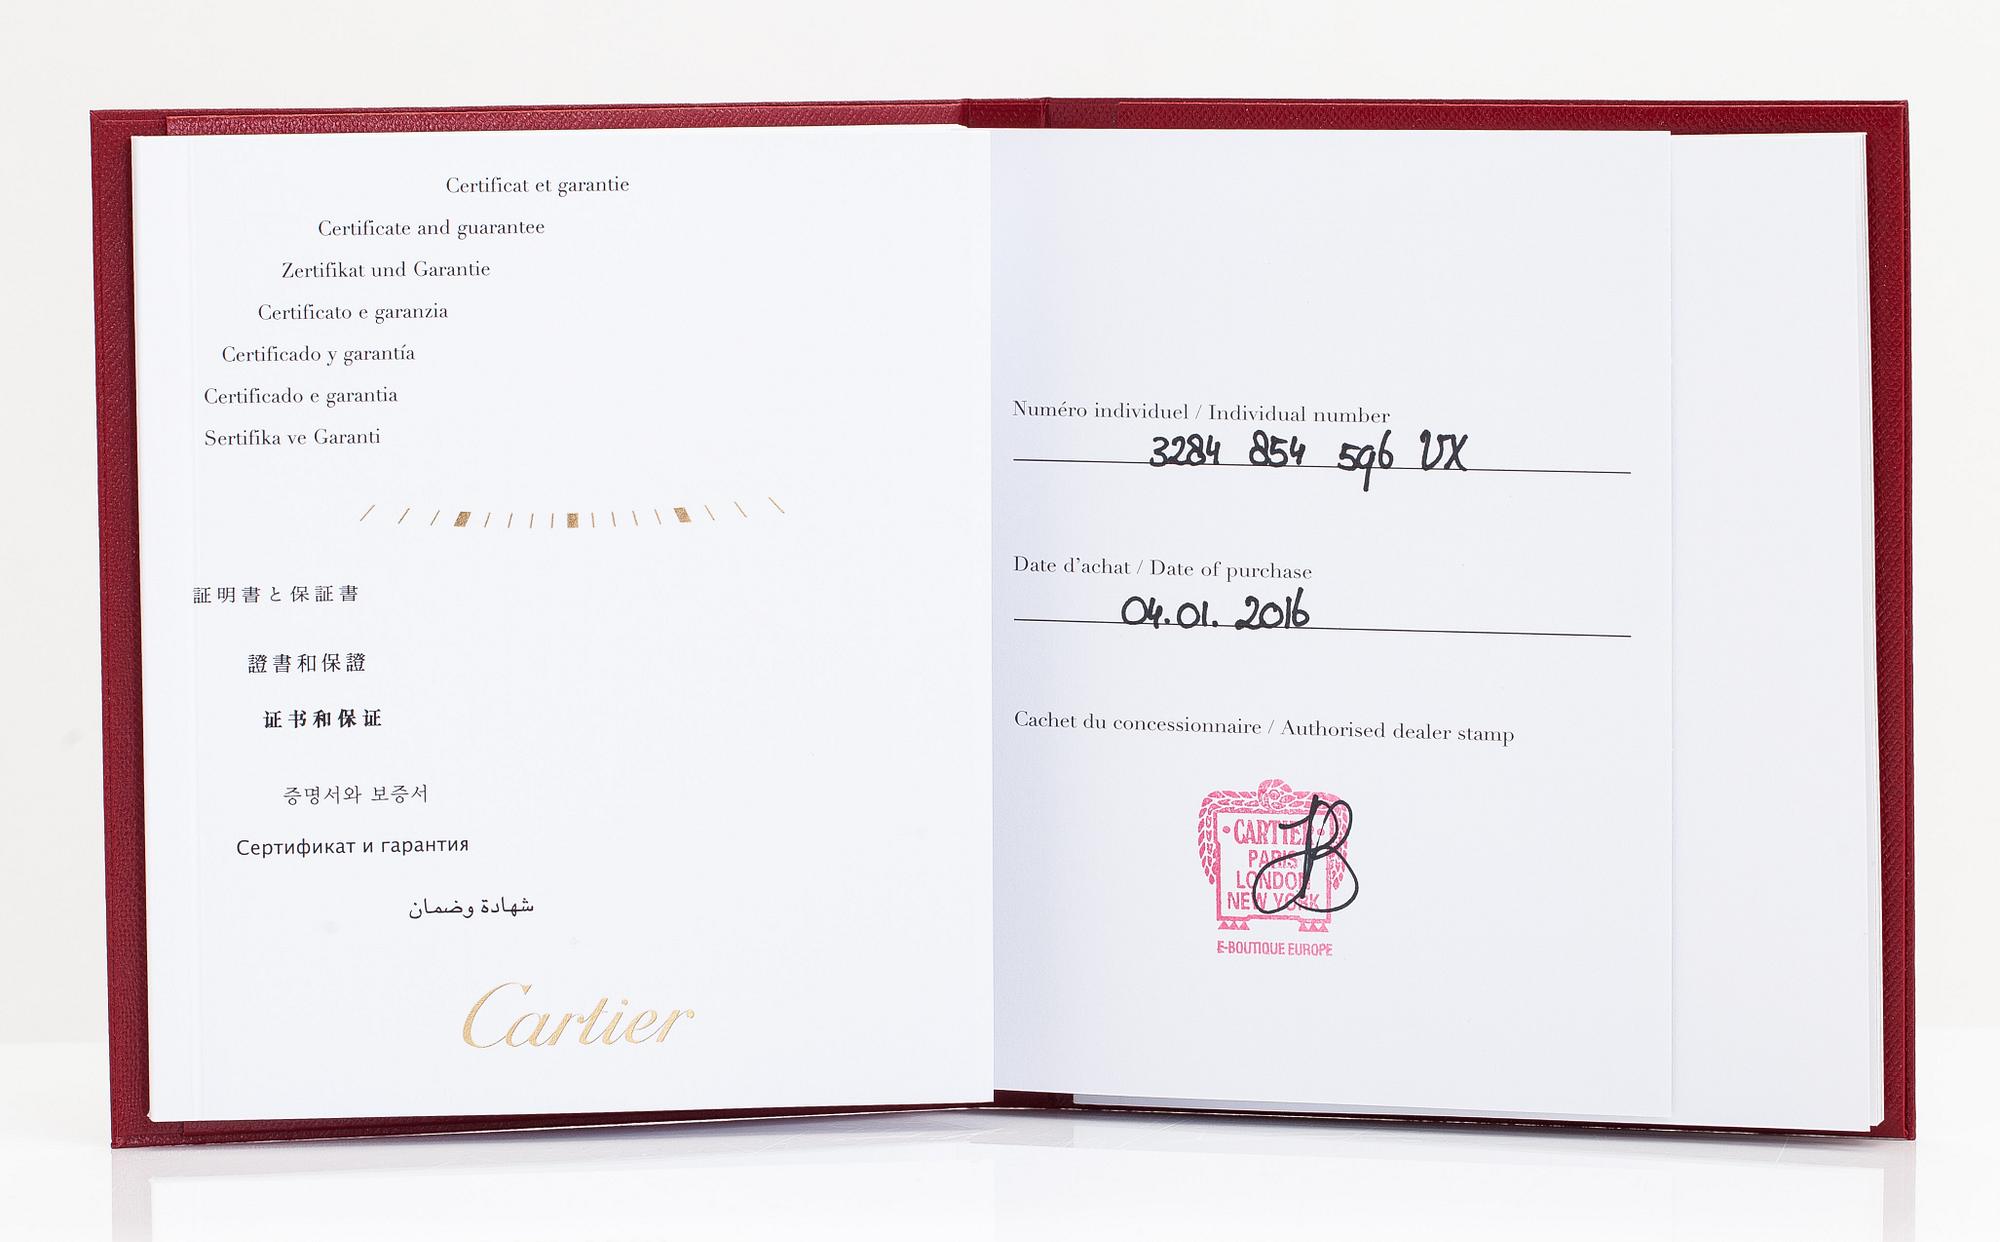 Certificat et garantie
Certificate and guarantee
Zertifikat und Garantie
Certificato e garanzia
Certificado y garantía
Certificado e garantia
Sertifika ve Garanti
証明書と保証書
證書和保證
证书和保证
증명서와 보증서
Сертификат и гарантия
شهادة وضمان
Cartier
Numéro individuel / Individual number
3284 854 596 UX
Date d'achat / Date of purchase
04.01. 2016
Cachet du concessionnaire / Authorised dealer stamp
CARTIER
PARIS
LONDON
NEW YORK
E-BOUTIQUE EUROPE